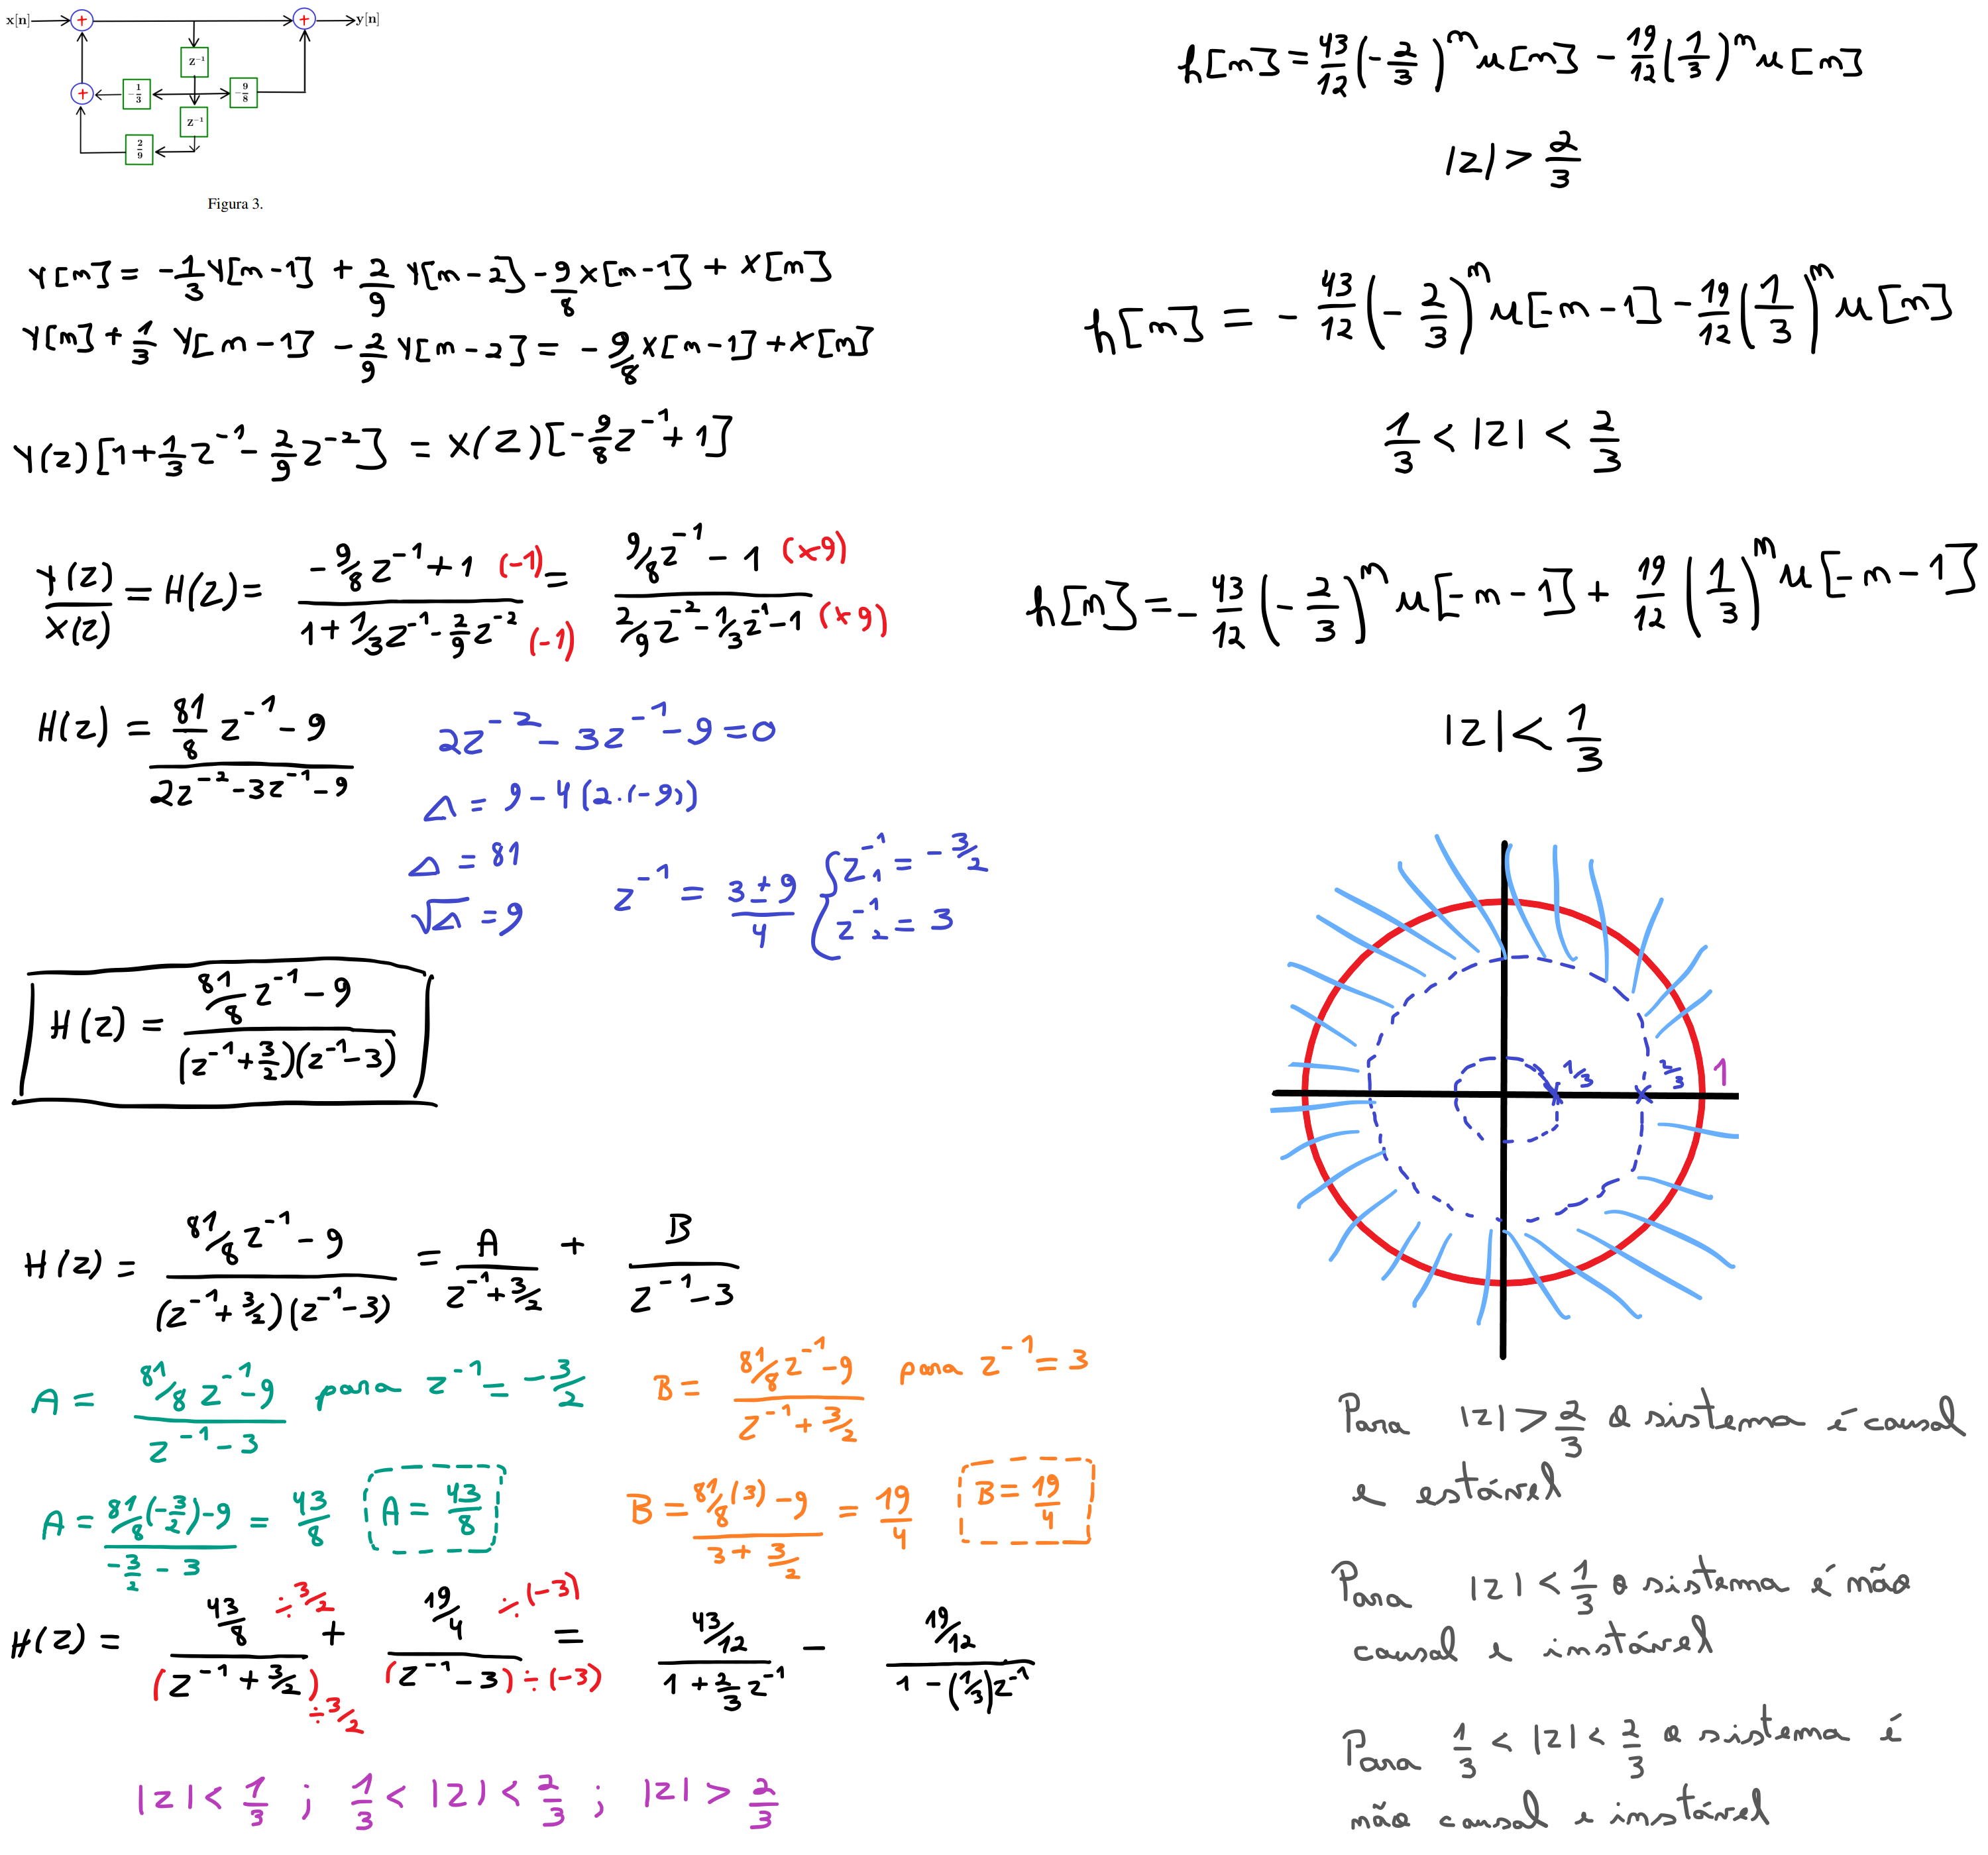 x[n] + + y[n]
z⁻¹
+ -1/3 -9/8
z⁻¹
2/9
Figura 3.
y[n] = -1/3 y[n-1] + 2/9 y[n-2] - 9/8 x[n-1] + x[n]
y[n] + 1/3 y[n-1] - 2/9 y[n-2] = -9/8 x[n-1] + x[n]
Y(z)[1 + 1/3 z⁻¹ - 2/9 z⁻²] = X(z)[-9/8 z⁻¹ + 1]
Y(z)/X(z) = H(z) = (-9/8 z⁻¹ + 1)/(1 + 1/3 z⁻¹ - 2/9 z⁻²) (-1) (-1) = (9/8 z⁻¹ - 1)/(2/9 z⁻² - 1/3 z⁻¹ - 1) (x9) (x9)
H(z) = (81/8 z⁻¹ - 9)/(2z⁻² - 3z⁻¹ - 9)
2z⁻² - 3z⁻¹ - 9 = 0
Δ = 9 - 4(2.(-9))
Δ = 81
√Δ = 9
z⁻¹ = (3 ± 9)/4 { z₁⁻¹ = -3/2
z₂⁻¹ = 3
H(z) = (81/8 z⁻¹ - 9)/((z⁻¹ + 3/2)(z⁻¹ - 3))
H(z) = (81/8 z⁻¹ - 9)/((z⁻¹ + 3/2)(z⁻¹ - 3)) = A/(z⁻¹ + 3/2) + B/(z⁻¹ - 3)
A = (81/8 z⁻¹ - 9)/(z⁻¹ - 3) para z⁻¹ = -3/2
A = (81/8(-3/2) - 9)/(-3/2 - 3) = 43/8 A = 43/8
B = (81/8 z⁻¹ - 9)/(z⁻¹ + 3/2) para z⁻¹ = 3
B = (81/8(3) - 9)/(3 + 3/2) = 19/4 B = 19/4
H(z) = (43/8)/(z⁻¹ + 3/2) ÷3/2 ÷3/2 + (19/4)/(z⁻¹ - 3) ÷(-3) ÷(-3) = (43/12)/(1 + 2/3 z⁻¹) - (19/12)/(1 - (1/3)z⁻¹)
|z| < 1/3 ; 1/3 < |z| < 2/3 ; |z| > 2/3
h[n] = 43/12 (-2/3)ⁿ u[n] - 19/12 (1/3)ⁿ u[n]
|z| > 2/3
h[n] = -43/12 (-2/3)ⁿ u[-n-1] - 19/12 (1/3)ⁿ u[n]
1/3 < |z| < 2/3
h[n] = -43/12 (-2/3)ⁿ u[-n-1] + 19/12 (1/3)ⁿ u[-n-1]
|z| < 1/3
1/3 2/3 1
Para |z| > 2/3 o sistema é causal
e estável
Para |z| < 1/3 o sistema é não
causal e instável
Para 1/3 < |z| < 2/3 o sistema é
não causal e instável